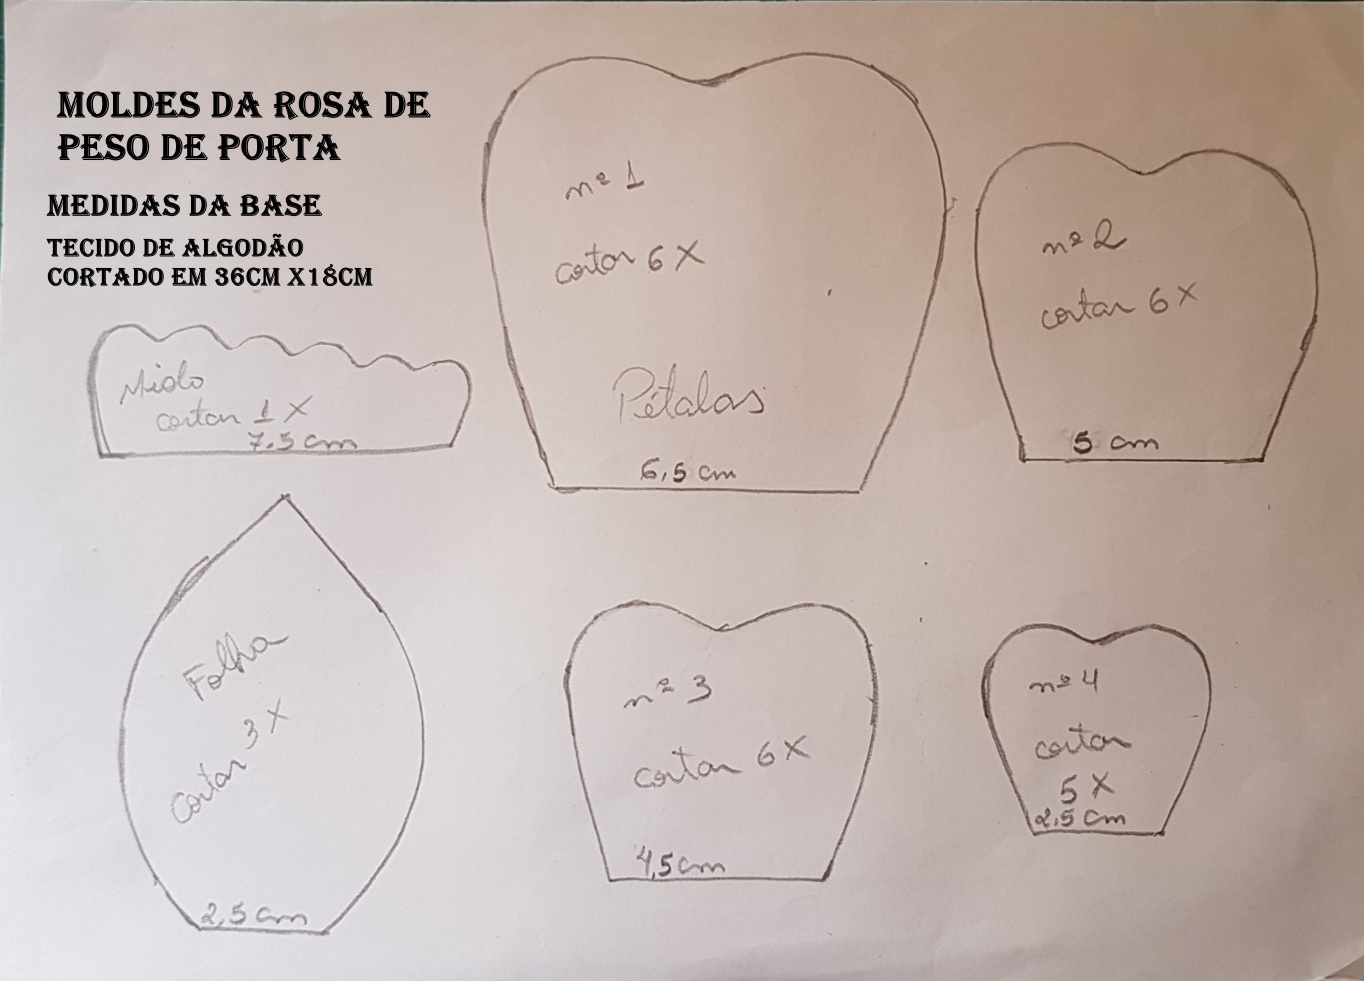 MOLDES DA ROSA DE
PESO DE PORTA
MEDIDAS DA BASE
TECIDO DE ALGODÃO
CORTADO EM 36CM X18CM
nº 1
cortar 6 X
Pétalas
6,5 cm
nº 2
cortar 6 X
5 cm
Miolo
cortar 1 X
7.5 cm
Folha
cortar 3 X
2,5 cm
nº 3
cortar 6 X
4,5 cm
nº 4
cortar
5 X
2,5 cm